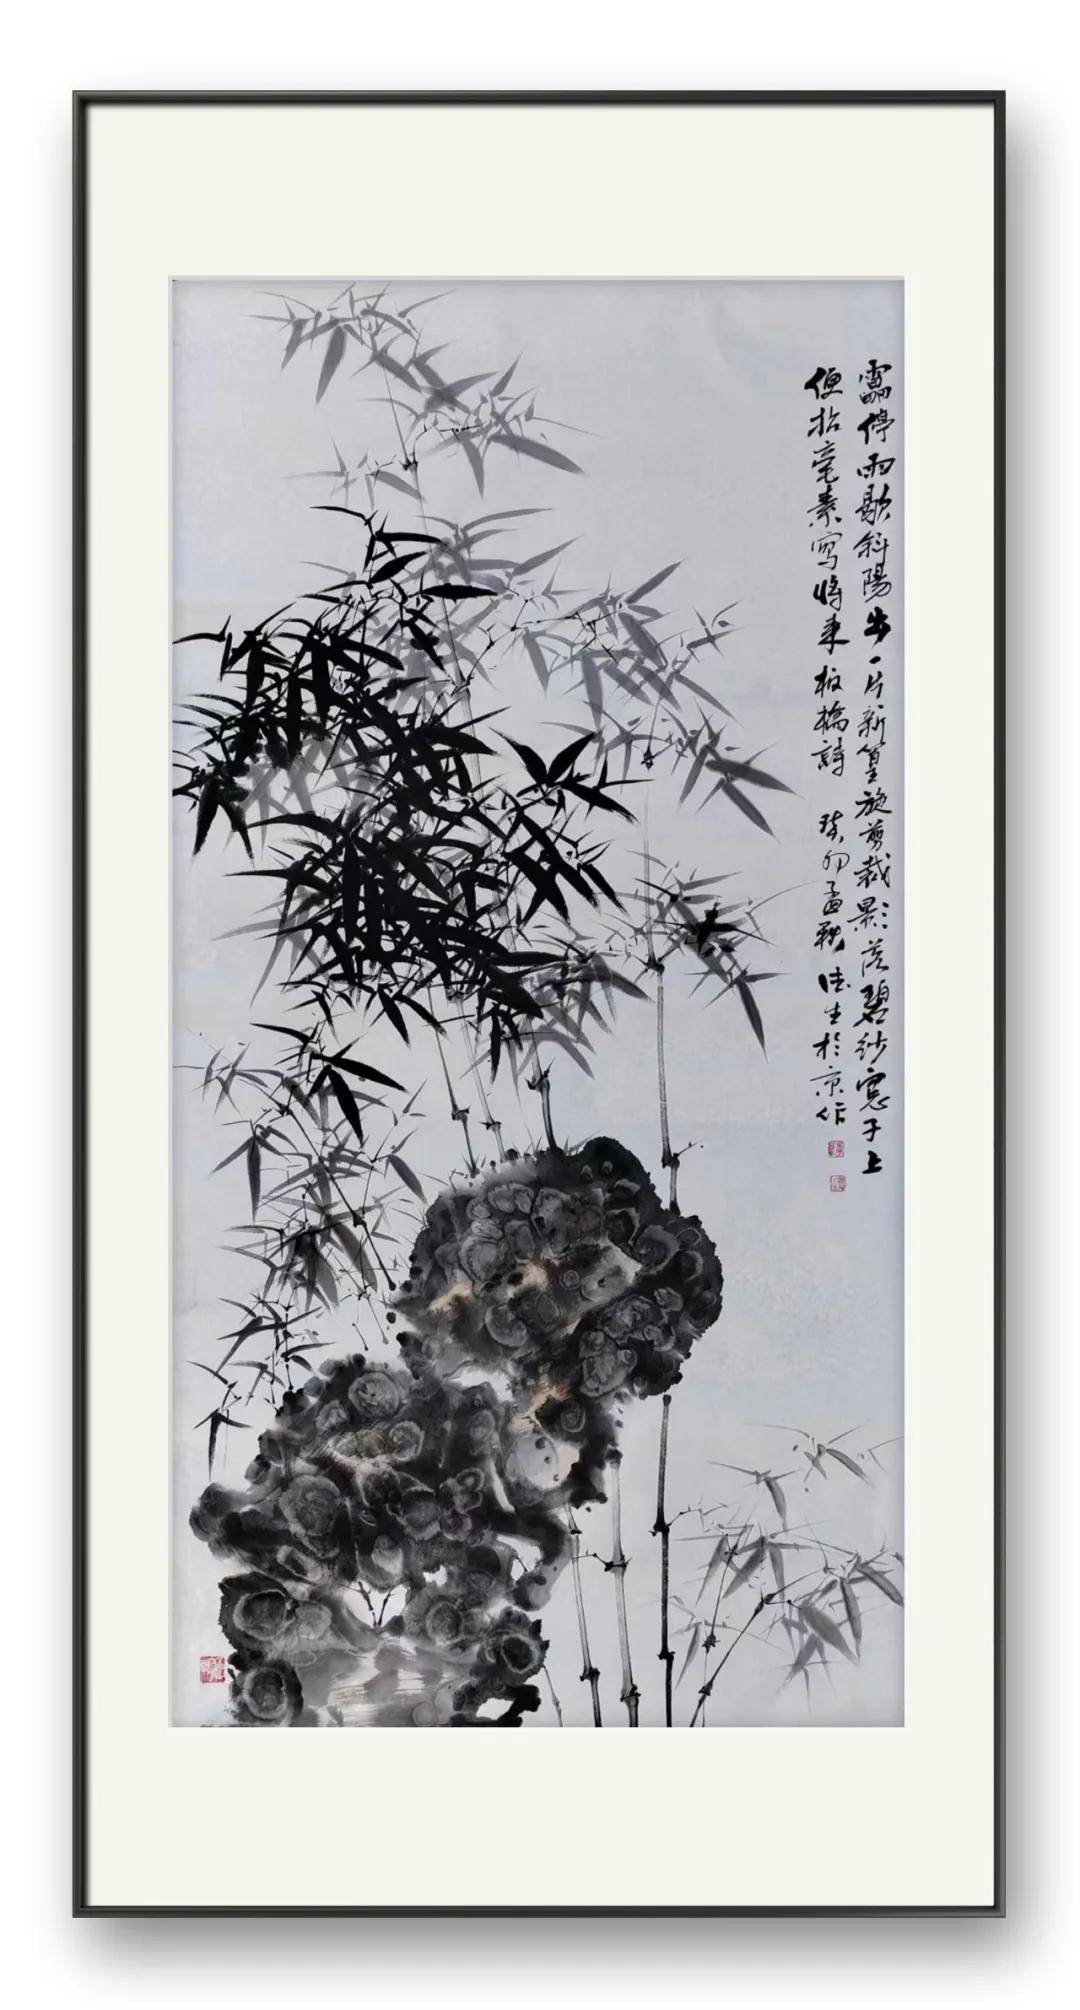 靁停雨歇斜陽出一片新篁旋剪裁影落碧紗窓子上
便拈毫素寫將來板橋詩 癸卯孟秋 德生於京作